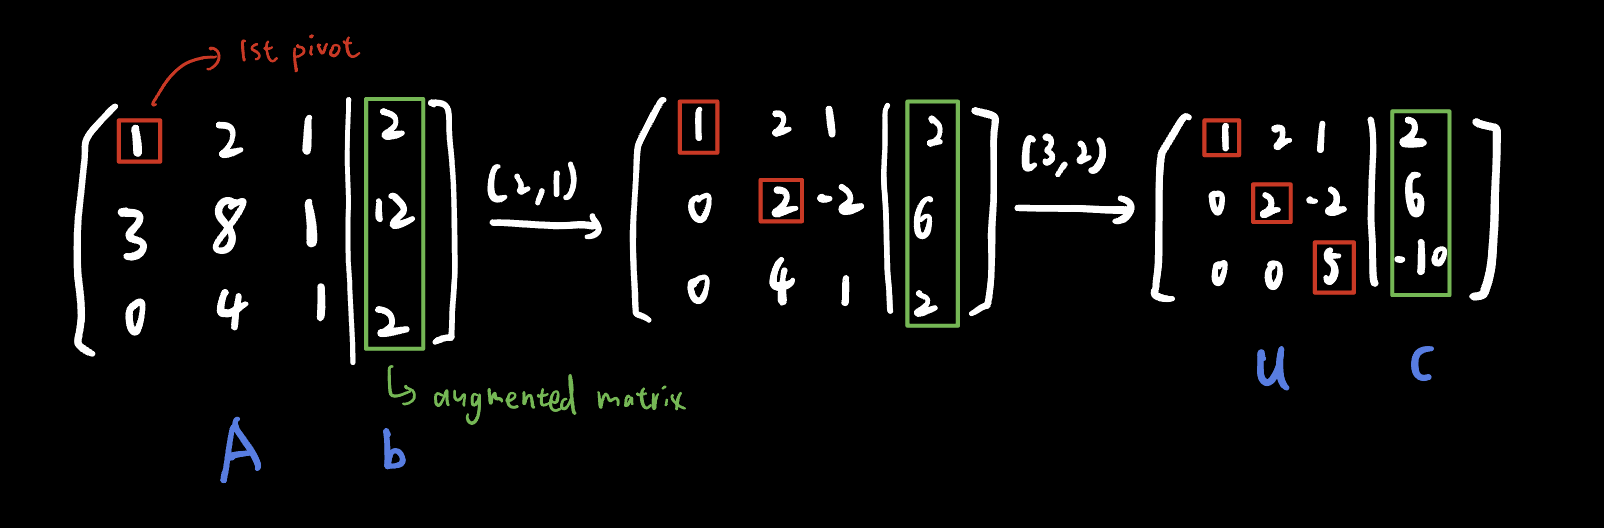 1st pivot
1 2 1 | 2
3 8 1 | 12
0 4 1 | 2
(2,1)
1 2 1 | 2
0 2 -2 | 6
0 4 1 | 2
(3,2)
1 2 1 | 2
0 2 -2 | 6
0 0 5 | -10
augmented matrix
A
b
U
C